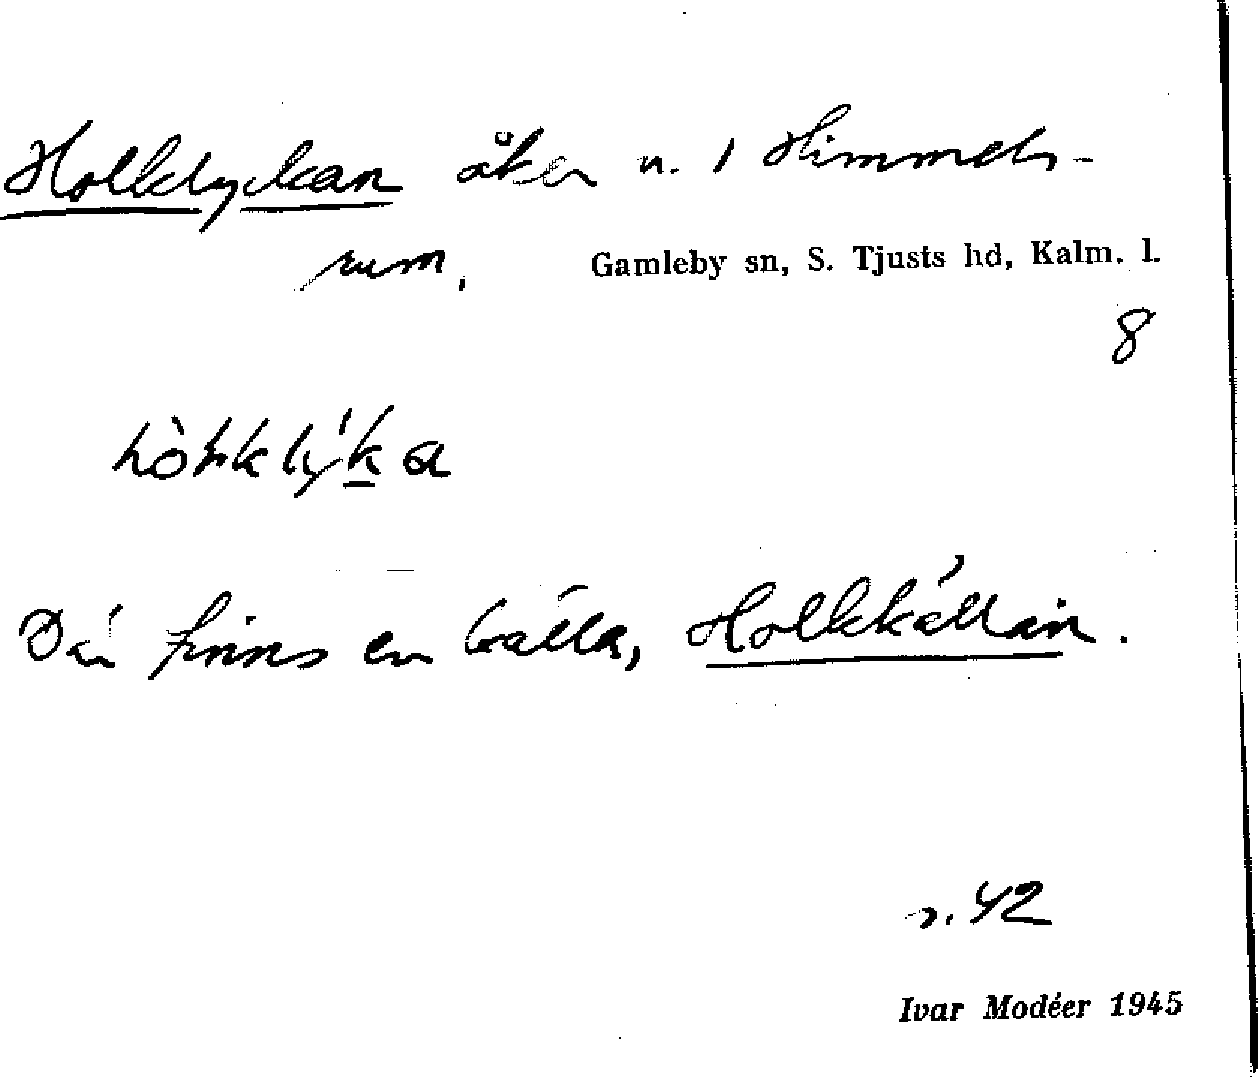 Holklyckan åker n. 1 Himmels-
rum,
Gamleby sn, S. Tjusts hd, Kalm. l.
8
Där finns en källa, Holkkällan.
s. 42
Ivar Modéer 1945